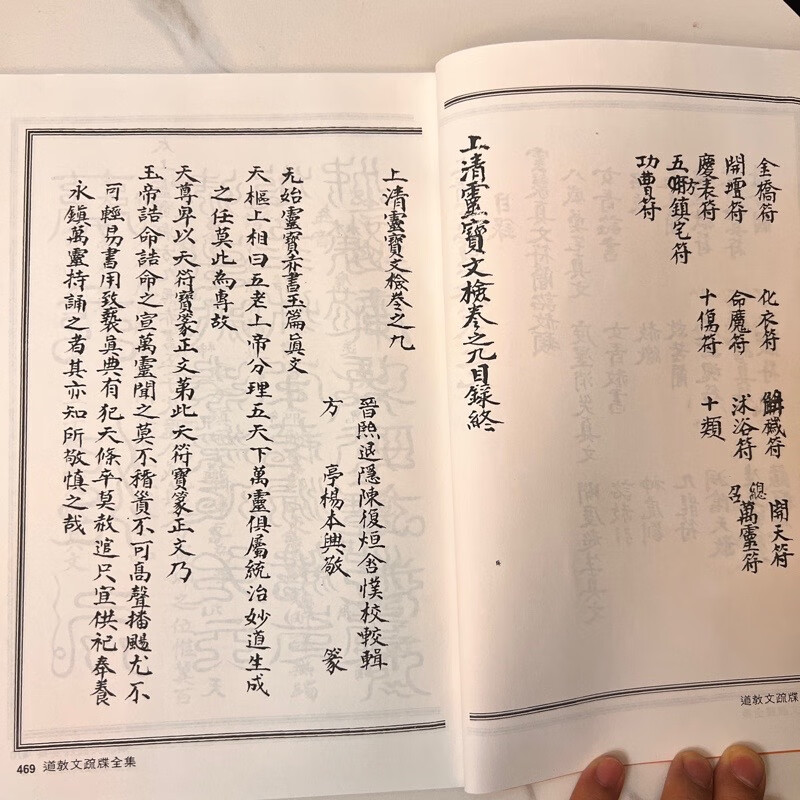 金橋符　化衣符　解穢符　開天符
開壇符　命魔符　沐浴符　總召萬靈符
慶表符　十傷符　十類
五方鎮宅符
功曹符
上清靈寶文檢卷之九目錄終
道教文疏牒
上清靈寶文檢卷之九
晉熙退隱陳復烜含憬校較輯
方　亭楊本興敬　篆
元始靈寶赤書玉篇眞文
天樞上相曰五老上帝分理五天下萬靈俱屬統治妙道生成
之任莫此為專故
天尊卑以天符寶篆正文第此天符寶篆正文乃
玉帝誥命誥命之宣萬靈聞之莫不稽顙不可高聲播颺尤不
可輕易書用致褻眞典有犯天條卒莫赦逭只宜供祀奉養
永鎭萬靈持誦之者其亦知所敬慎之哉
469 道教文疏牒全集